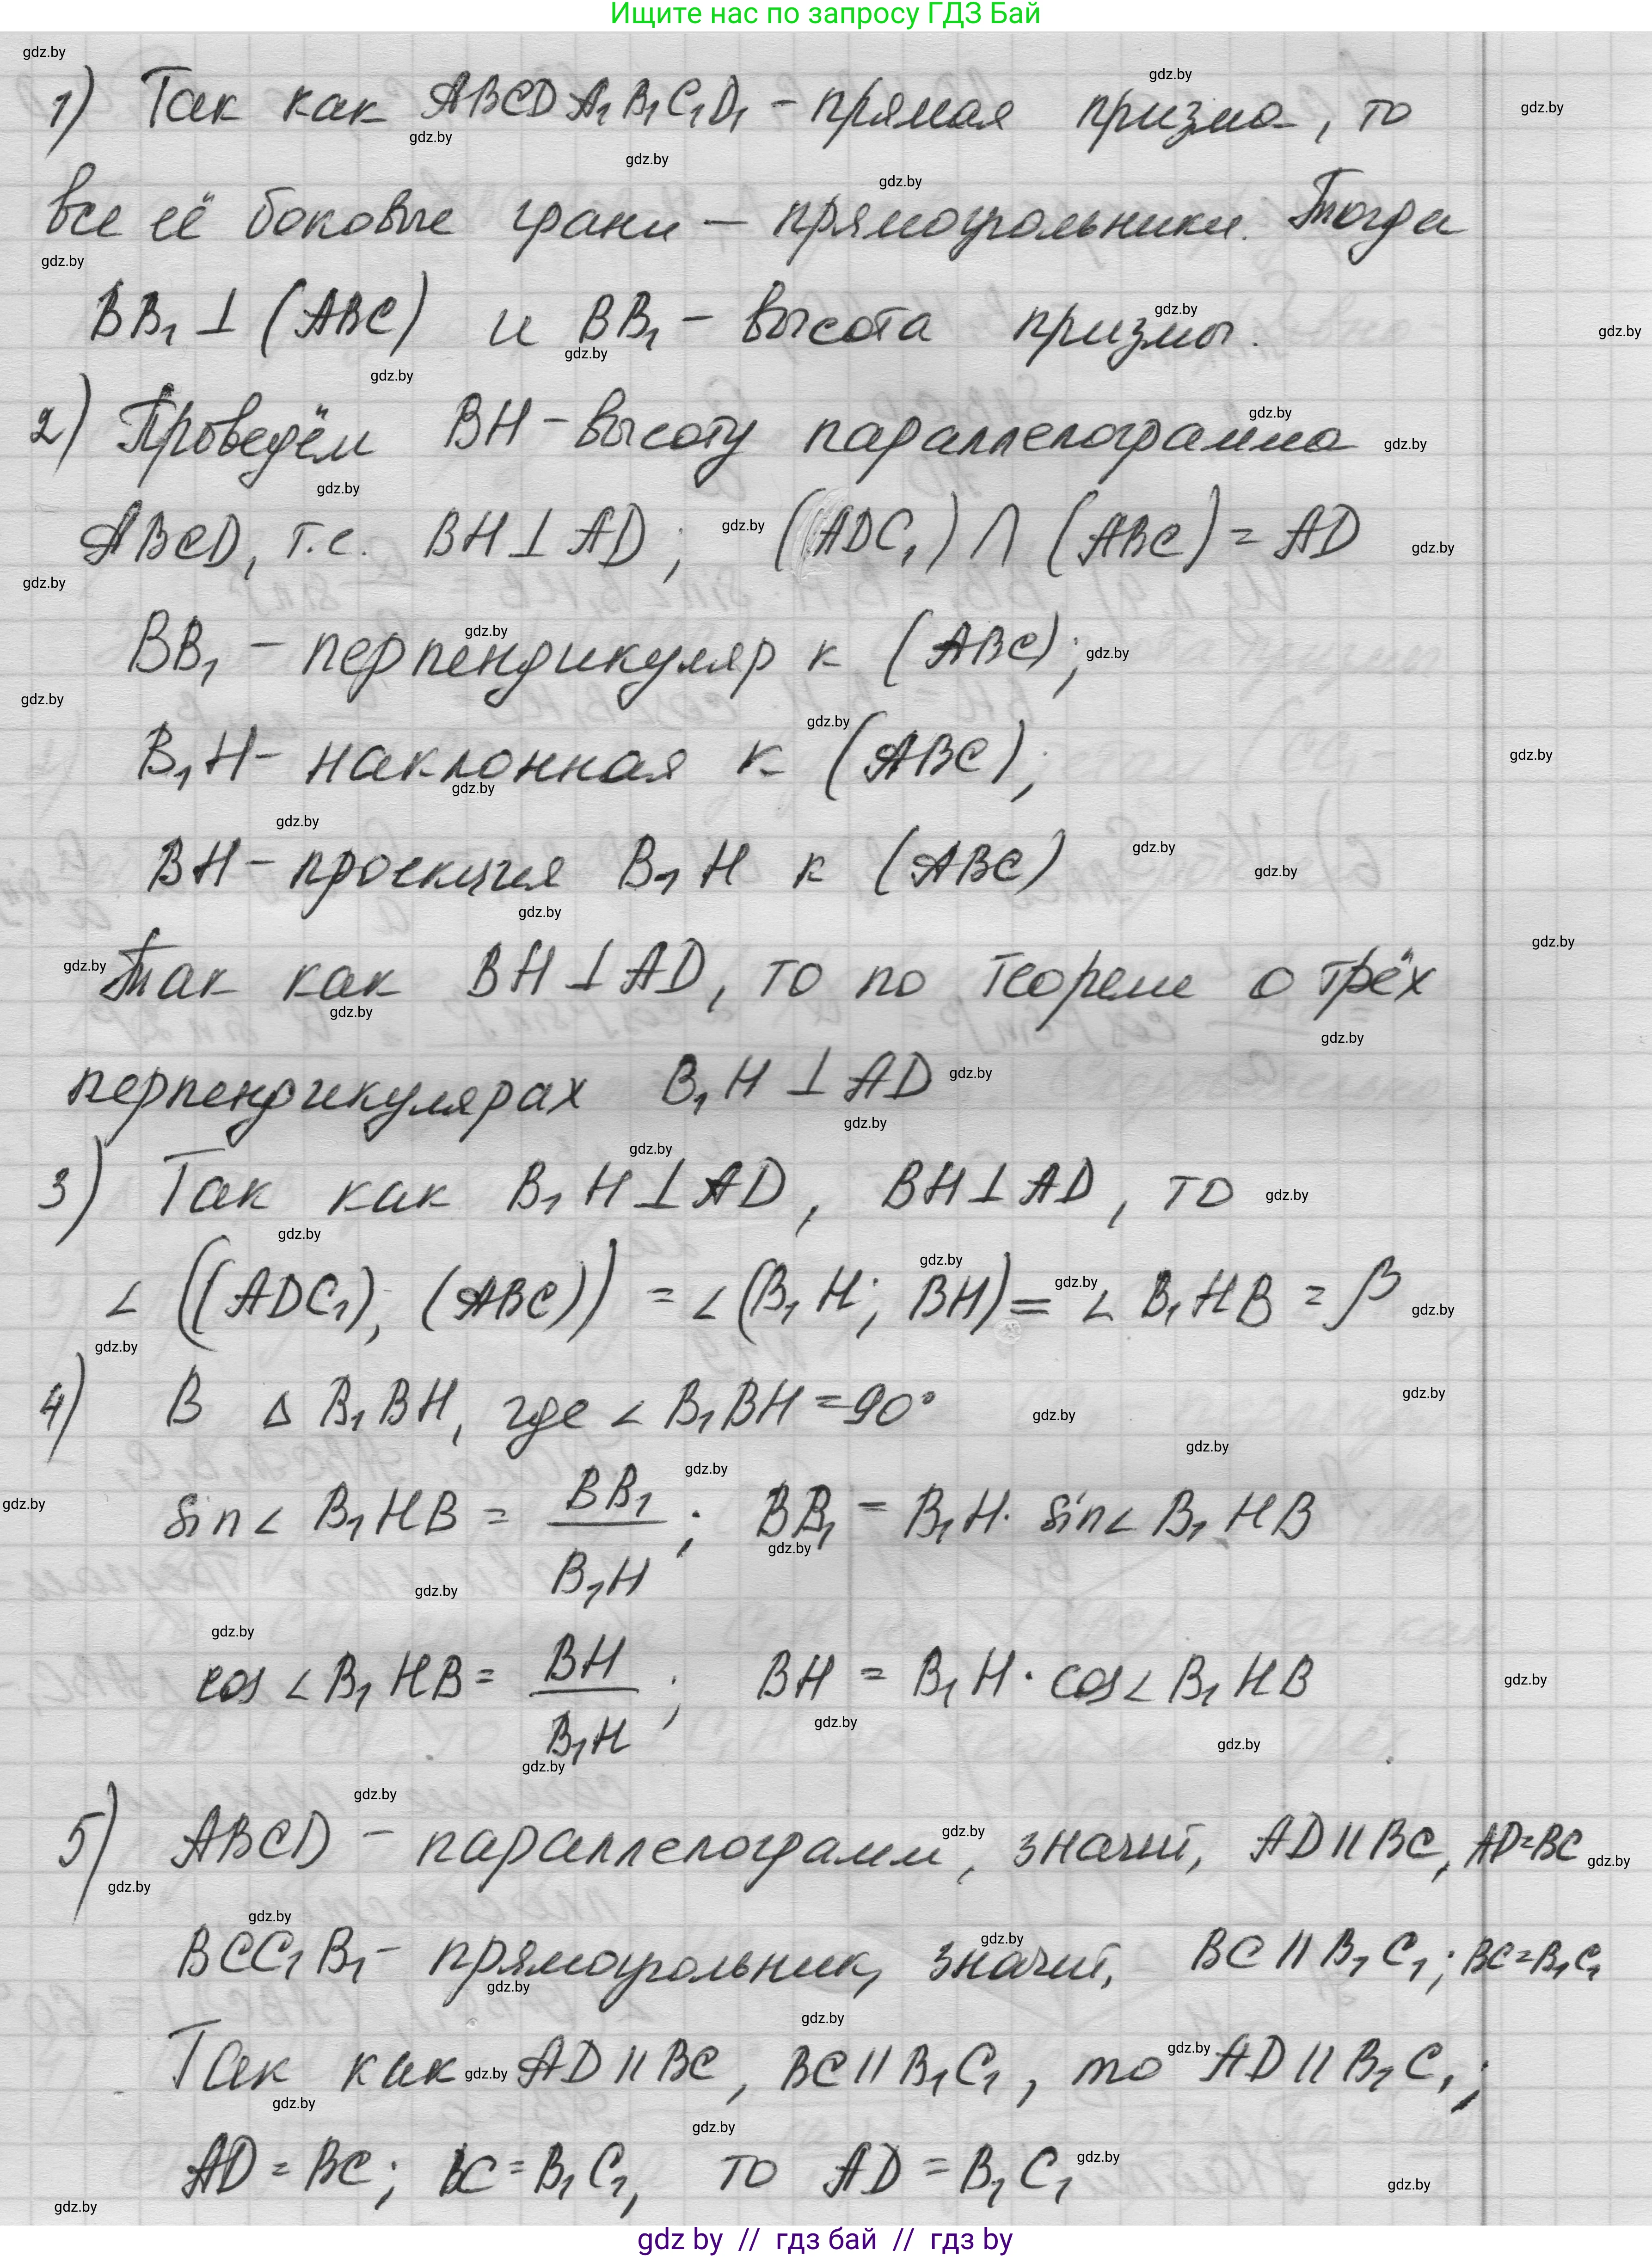 Ищите нас по запросу ГДЗ Бай
1) Так как ABCDA₁B₁C₁D₁ - прямая призма, то
все её боковые грани — прямоугольники. Тогда
BB₁ ⊥ (ABC) и BB₁ - высота призмы.
2) Проведём BH - высоту параллелограмма
ABCD, т.е. BH ⊥ AD; (ADC₁) ∩ (ABC) = AD
BB₁ - перпендикуляр к (ABC);
B₁H - наклонная к (ABC);
BH - проекция B₁H к (ABC)
Так как BH ⊥ AD, то по теореме о трёх
перпендикулярах B₁H ⊥ AD
3) Так как B₁H ⊥ AD, BH ⊥ AD, то
∠((ADC₁), (ABC)) = ∠(B₁H; BH) = ∠B₁HB = β
4) В △ B₁BH, где ∠B₁BH = 90°
sin∠B₁HB = BB₁/B₁H; BB₁ = B₁H · sin∠B₁HB
cos∠B₁HB = BH/B₁H; BH = B₁H · cos∠B₁HB
5) ABCD - параллелограмм, значит, AD || BC, AD = BC
BCC₁B₁ - прямоугольник, значит, BC || B₁C₁; BC = B₁C₁
Так как AD || BC, BC || B₁C₁, то AD || B₁C₁;
AD = BC; BC = B₁C₁, то AD = B₁C₁
gdz by // гдз бай // гдз by